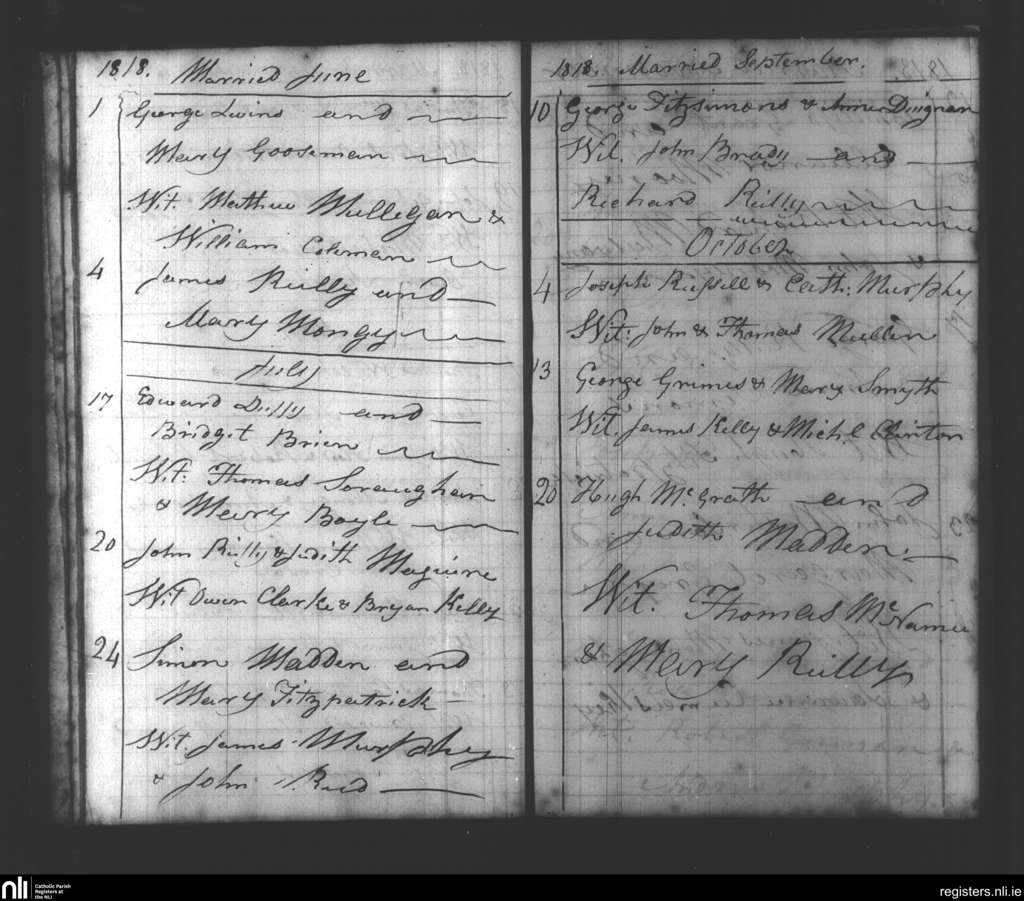 1818. Married June
1 George Levins and
Mary Gooseman
Wit. Mathew Mullegan &
William Coleman
4 James Reilly and
Mary Mongy
July
17 Edward Duffy and
Bridget Brien
Wit. Thomas Soraughan
& Mary Boyle
20 John Reilly & Judith Maguire
Wit Owen Clarke & Bryan Kelly
24 Simon Madden and
Mary Fitzpatrick
Wit. James Murphy
& John Reid
1818. Married September.
10 George Fitzsimons & Anne Duignan
Wit. John Brady and
Richard Reilly
October
4 Joseph Russell & Cath: Murphy
Wit: John & Thomas Mullen
13 George Grimes & Mary Smyth
Wit. James Kelly & Michl. Clinton
20 Hugh McGrath and
Judith Madden
Wit. Thomas McNamee
& Mary Reilly
nli Catholic Parish
Registers at
the NLI
registers.nli.ie